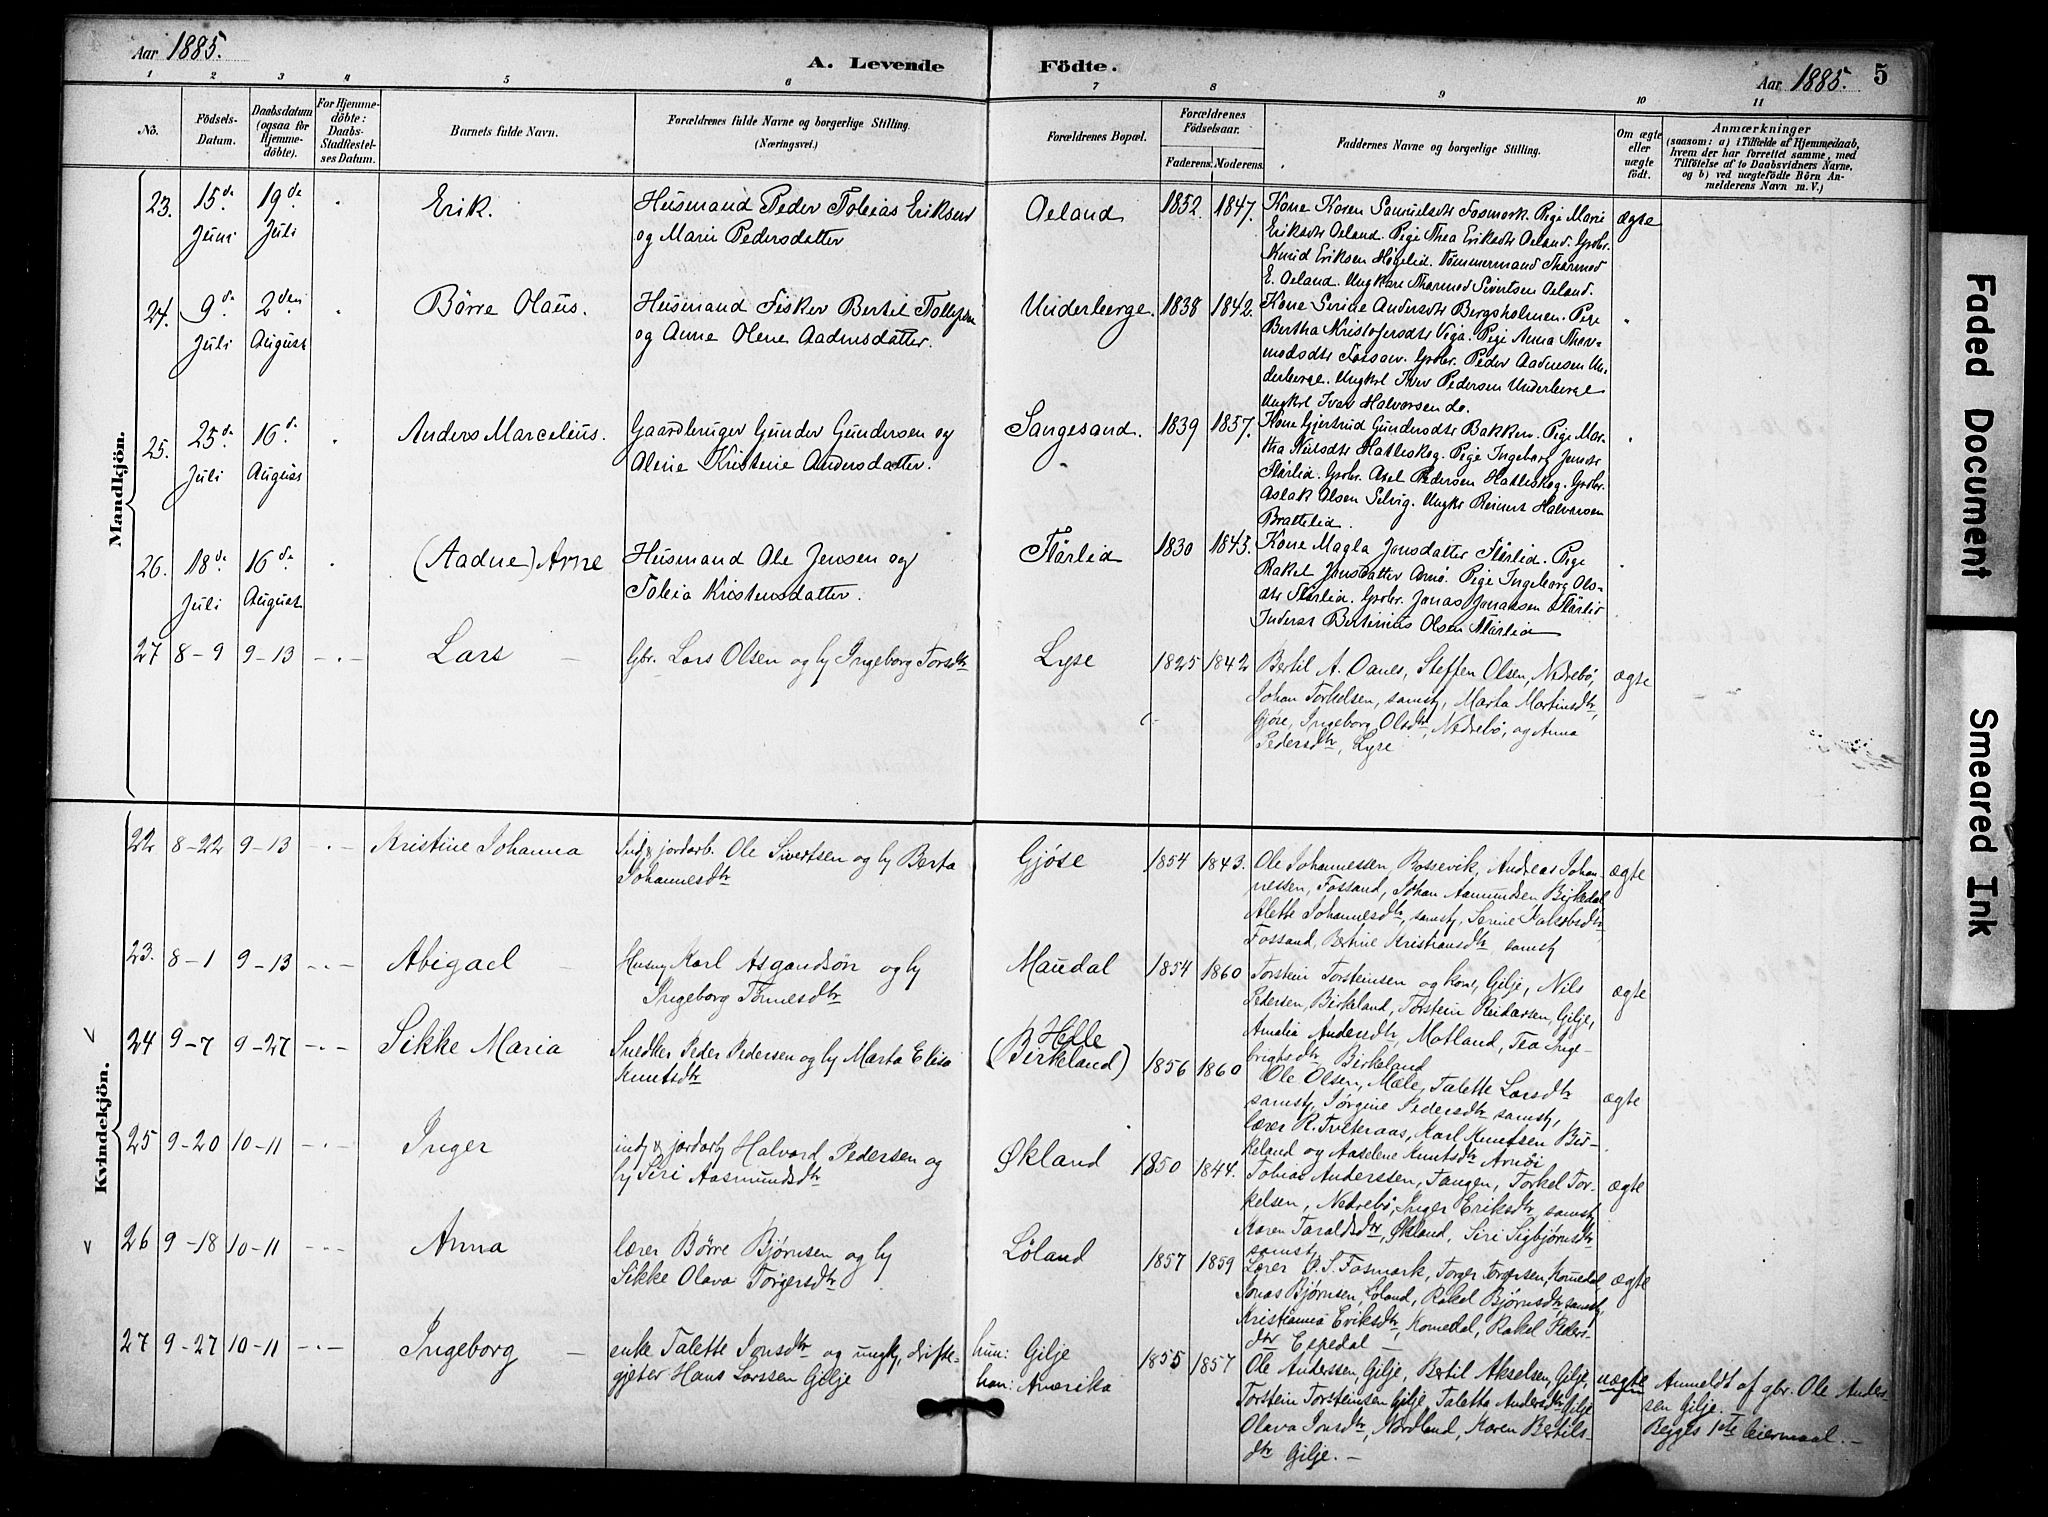 Aar 1885.
A. Levende Födte.
Aar 1885. 5
1 2 3 4 5 6 7 8 9 10 11
No.
Födsels-
Datum.
Daabsdatum
(ogsaa for
Hjemme-
döbte).
For Hjemme-
döbte:
Daabs-
Stadfestel-
ses Datum.
Barnets fulde Navn.
Forældrenes fulde Navne og borgerlige Stilling.
(Næringsvei.)
Forældrenes Bopæl.
Forældrenes
Födselsaar.
Faderens. Moderens.
Faddernes Navne og borgerlige Stilling.
Om ægte
eller
uægte
födt.
Anmærkninger
(saasom: a) i Tilfælde af Hjemmedaab,
hvem der har forrettet samme, med
Tilföielse af to Daabsvidners Navne,
og b) ved uægtefödte Börn An-
melderens Navn m. V.)
Mandkjön.
23.
15de
Juni
19de
Juli
Erik.
Husmand Peder Tobias Eriksen
og Marie Pedersdatter
Oeland
1852. 1847.
Kone Karen Samuelsdtr Fosmark. Pige Marie
Eriksdtr Oeland. Pige Thea Eriksdtr Oeland. Grdbr.
Knud Eriksen Høgelid. Tømmermand Thormod
E. Oeland. Ungkarl Thormod Sivertsen Oeland.
ægte
24.
9de
Juli
2den
August
Börre Olaus.
Husmand Fisker Bertel Tollefsen
og Anne Olene Aadnesdatter.
Underberge.
1838 1842.
Kone Serine Andersdtr Bergsholmen. Pige
Bertha Kristofersdtr Viga. Pige Anna Thor-
modsdtr Fossan. Grdbr. Peder Aadnesen Un-
derberge. Ungkrl Iver Pedersen Underberge
Ungkrl Ivar Halvorsen do.
25.
25de
Juli
16de
August
Anders Marcelius.
Gaardbruger Gunder Gundersen og
Alene Kristine Andersdatter.
Sangesand.
1839 1857.
Kone Gjertrud Gundersdtr Bakken. Pige Mar-
tha Nielsdtr Hatleskog. Pige Ingeborg Jensdtr
Flörlid. Grdbr. Axel Pedersen Hatleskog. Grdbr.
Aslak Olsen Selvig. Ungkr Reinert Halvorsen
Brattelid.
26.
18de
Juli
16de
August
(Aadne) Arne
Husmand Ole Jensen og
Tobia Kristensdatter.
Flörlid
1830 1843.
Kone Magla Jonsdatter Flörlid. Pige
Rakel Jonsdatter Arnö. Pige Ingeborg Ols-
dtr Flörlid. Grdbr. Jonas Jonassen Flörlid
Inderst Bertinius Olsen Flörlid
27 8-9 9-13
Lars
Gbr. Lars Olsen og hu Ingeborg Torsdtr
Lyse
1825 1842
Bertil A. Oanes, Steffen Olsen, Nedrebø,
Johan Torkelsen, samst, Marta Martinsdtr,
Gjöse, Ingeborg Olsdtr, Nedrebö, og Anna
Pedersdtr, Lyse
ægte
Kvindekjön.
22 8-22 9-13
Kristine Johanna
Ind. & jordarb. Ole Sivertsen og hu Berta
Johannesdtr
Gjöse
1854 1843.
Ole Johannessen Rossevik, Andreas Johan-
nessen, Fossand, Johan Aamundsen Birkedal
Alette Johannesdtr, samst, Serine Jakobsdtr,
Fossand, Bertine Kristiansdtr samst
ægte
23. 8-1 9-13
Abigael
Husm Karl Asgandsön og hu
Ingeborg Tönnesdtr
Maudal
1854 1860
Torstein Torsteinsen og kone, Gilje, Nils
Pedersen, Birkeland, Torstein Reidarsen, Gilje,
Amalia Andersdtr, Motland, Tea Inge-
brigtsdtr Birkeland
ægte
24 9-7 9-27
Sikke Maria
Snedker Peder Pedersen og hu Marta Elisa
Knutsdtr
Helle
(Birkland)
1856 1860
Ole Olsen, Mæle, Talette Larsdtr
samst, Jørgine Pedersdtr samst,
lærer R. Tveteraas, Karl Knutsen Bir-
keland og Aaselene Knutsdtr Arnöi
ægte
25 9-20 10-11
Inger
ind & jordarb Halvard Pedersen og
hu Siri Aasmundsdtr
Økland
1850 1844.
Tobias Anderssen, Tangen, Torkel Tor-
kelsen, Nedrebö, Inger Eriksdtr samst,
Karen Taraldsdtr, Økland, Siri Sigbjörnsdtr
samst,
ægte
26 9-18 10-11
Anna
lærer Börre Bjørnsen og hu
Sikke Olava Torgersdtr
Löland
1857 1859
Lærer P. S. Fosmark, Torger Torgersen, Komedal,
Jonas Bjørnsen, Löland, Rakel Bjørnsdtr, samst,
Kristianna Eriksdtr, Komedal, Rakel Peders-
dtr Espedal —
ægte
27 9-27 10-11
Ingeborg
enke Talette Jonsdtr og ungk, drifte-
gjeter Hans Larssen Gilje
hun: Gilje
han: Amerika
1855 1857
Ole Anderssen, Gilje, Bertil Akselsen, Gilje,
Torstein Torsteinsen Gilje, Taletta Andersdtr Gilje
Olava Jonsdtr, Nordland, Karen Bertils-
dtr Gilje. —
uægte
Anmeldt af gbr. Ole Anders-
sen Gilje. —
Begges 1ste leiermaal. —
Faded Document
Smeared Ink